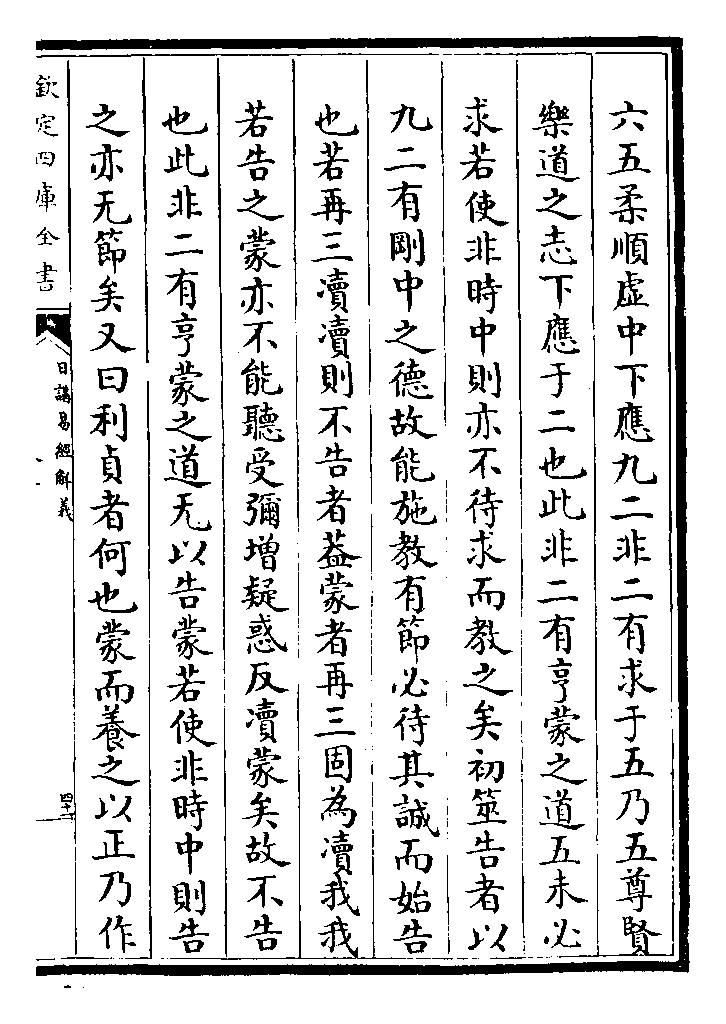 六五柔順虚中下應九二非二有求于五乃五尊賢
樂道之志下應于二也此非二有亨蒙之道五未必
求若使非時中則亦不待求而教之矣初筮告者以
九二有剛中之德故能施教有節必待其誠而始告
也若再三瀆瀆則不告者葢蒙者再三固為瀆我我
若告之蒙亦不能聽受彌增疑惑反瀆蒙矣故不告
也此非二有亨蒙之道无以告蒙若使非時中則告
之亦无節矣又曰利貞者何也蒙而養之以正乃作
欽定四庫全書
日講易經解義